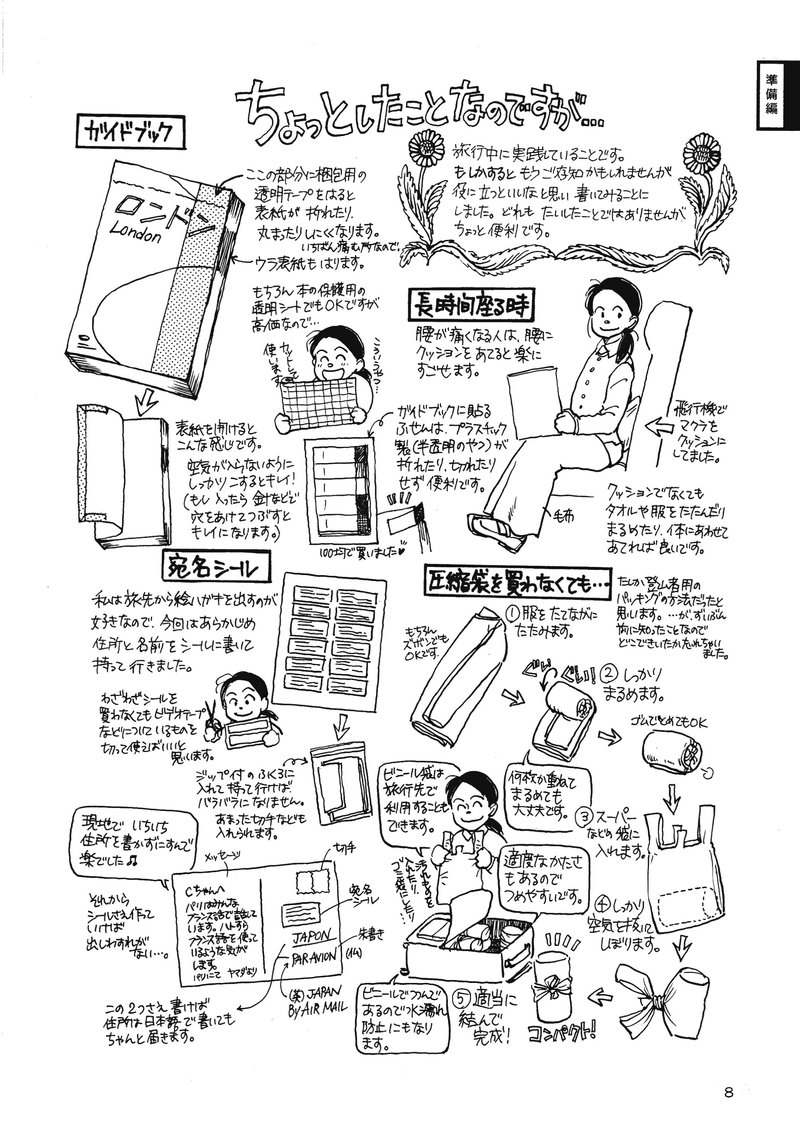 準備編
ちょっとしたことなのですが…
旅行中に実践していることです。
もしかすると もうご存知かもしれませんが
役に立つといいなと思い 書いてみることに
しました。どれも たいしたことではありませんが
ちょっと便利です。
ガイドブック
ロンドン
London
ここの部分に梱包用の
透明テープをはると
表紙が 折れたり、
丸まったりしにくくなります。
いちばん痛む所なので、
ウラ表紙もはります。
もちろん 本の保護用の
透明シートでもOKですが
高価なので…
こういうやつ…
カットして
使います
表紙を開けると
こんな感じです。
空気が入らないように
しっかりこするとキレイ!
(もし入ったら 金針などで
穴をあけてつぶすと
キレイになります。)
ガイドブックに貼る
ふせんは、プラスチック
製(半透明のやつ)が
折れたり、切れたり
せず 便利です。
100均で買いました
長時間座る時
腰が痛くなる人は、腰に
クッションをあてると楽に
すごせます。
飛行機で
マクラを
クッションに
してました。
毛布
クッションでなくても
タオルや服をたたんだり
まるめたり、体にあわせて
あてれば良いです。
宛名シール
私は旅先から絵ハガキを出すのが
好きなので、今回はあらかじめ
住所と名前をシールに書いて
持って行きました。
わざわざシールを
買わなくてもビデオテープ
などについているものを
切って使えばいいと
思います。
ジップ付のふくろに
入れて持って行けば
バラバラになりません。
あまった切手なども
入れられます。
現地で いちいち
住所を書かずにすんで
楽でした♫
それから
シールさえ作って
いけば
出しわすれが
ない…。
メッセージ
切手
宛名
シール
朱書き
Cちゃんへ
パリはみんな
フランス語で話して
います。ハトすら
フランス語を使って
いるような気が
します。
パリにて ヤマダより
JAPON
PAR AVION
(仏)
(英) JAPAN
BY AIR MAIL
この2つさえ書けば
住所は日本語で書いても
ちゃんと届きます。
圧縮袋を買わなくても…
たしか 登山者用の
パッキングの方法だったと
思います。…が、ずいぶん
前に知ったことなので
どこできいたかわすれちゃい
ました。
①服をたてながに
たたみます。
もちろん
ズボンでも
OKです。
ぐいぐい!
②しっかり
まるめます。
ゴムでとめてもOK
何枚か重ねて
まるめても
大丈夫です。
③スーパー
などの袋に
入れます。
④しっかり
空気を抜いて
しぼります。
⑤適当に
結んで
完成!
コンパクト!
ビニール袋は
旅行先で
利用することも
できます。
汚れものを
入れたり、
ゴミ袋にしたり…
適度なかたさ
もあるので
つめやすいです。
ビニールでつつんで
あるので水濡れ
防止にもなり
ます。
8